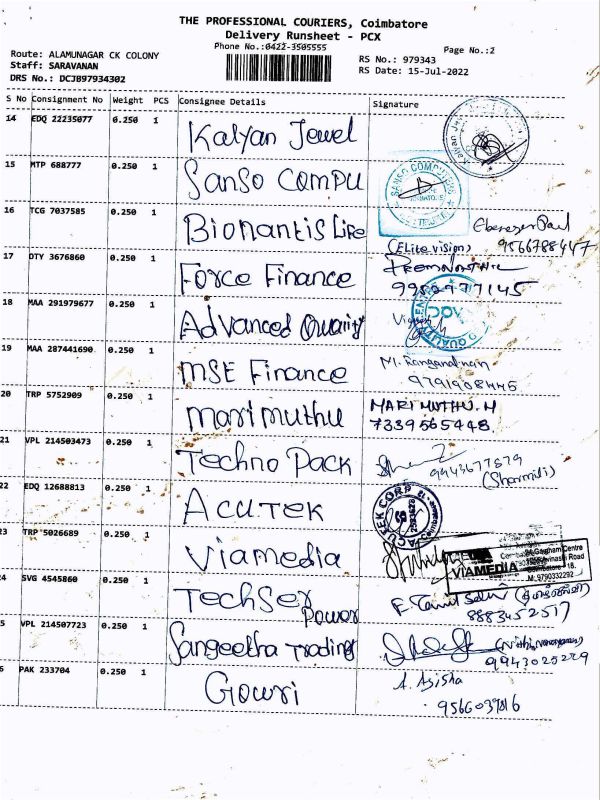 THE PROFESSIONAL COURIERS, Coimbatore
Delivery Runsheet - PCX
Phone No.:0422-3505555
Page No.:2
Route: ALAMUNAGAR CK COLONY
RS No.: 979343
Staff: SARAVANAN
RS Date: 15-Jul-2022
DRS No.: DCJB97934302
S No Consignment No Weight PCS Consignee Details Signature
14 EDQ 22235077 0.250 1 Kalyan Jewel
15 MTP 688777 0.250 1 Sanso Compu
SANSO COMPU
16 TCG 7037585 0.250 1 Bionantis Life Ebenezer Paul
(Elite vision) 9566788447
17 DTY 3676860 0.250 1 Force Finance
9952977145
18 MAA 291979677 0.250 1 Advanced Quality
19 MAA 287441690 0.250 1 MSE Finance M. Ranganathan
9791908445
20 TRP 5752909 0.250 1 Marimuthu MARIMUTHU.M
7339565448
21 VPL 214503473 0.250 1 Techno Pack 9943677879
(Sharmili)
22 EDQ 12688813 0.250 1 Acutek
ACUTEK CORP
23 TRP 5026689 0.250 1 Viamedia
VIAMEDIA
M: 9790332292
24 SVG 4545860 0.250 1 TechSer Power
8883452517
5 VPL 214507723 0.250 1 Sangeetha Trading
9943025229
6 PAK 233704 0.250 1 Gowri A. Ajisha
9566039816